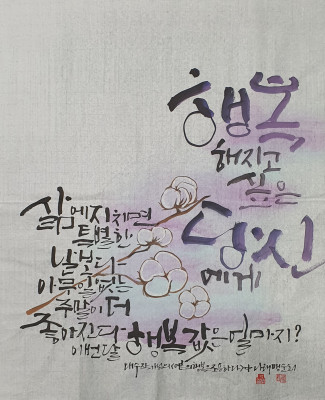 행복
해지고
싶은
당신
에게
삶에 지치면
특별한
날보다
아무 일 없는
주말이 더
좋아진다
이번 달 행복 값은 얼마지?